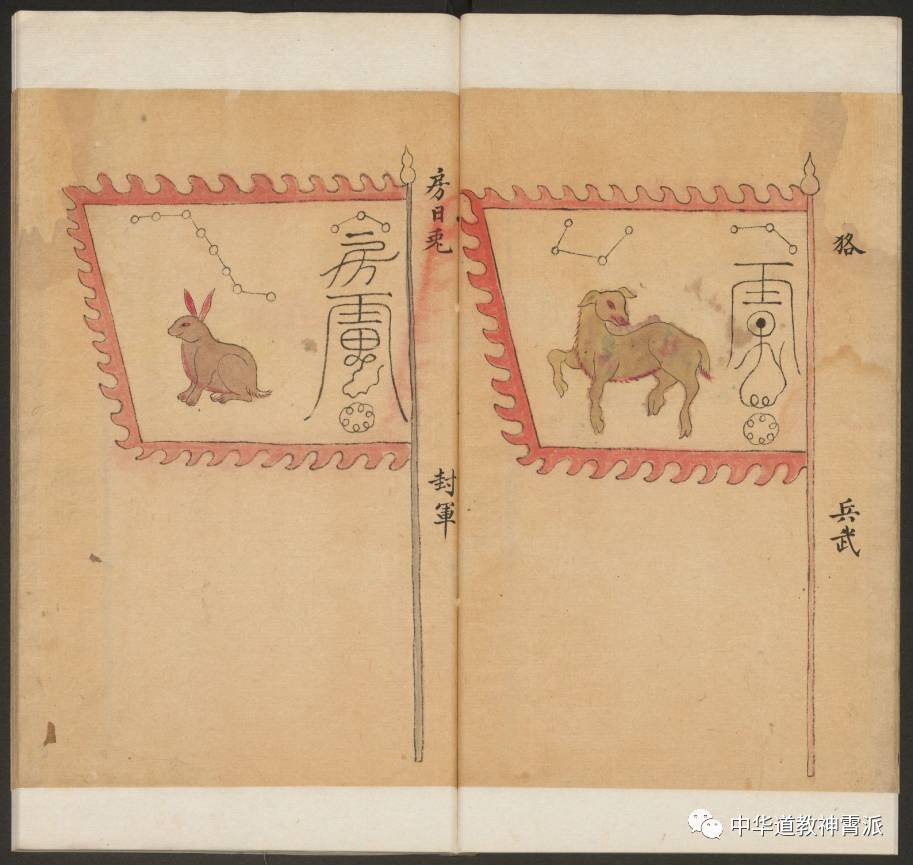 狢
兵武
房日兎
封軍
房
中华道教神霄派